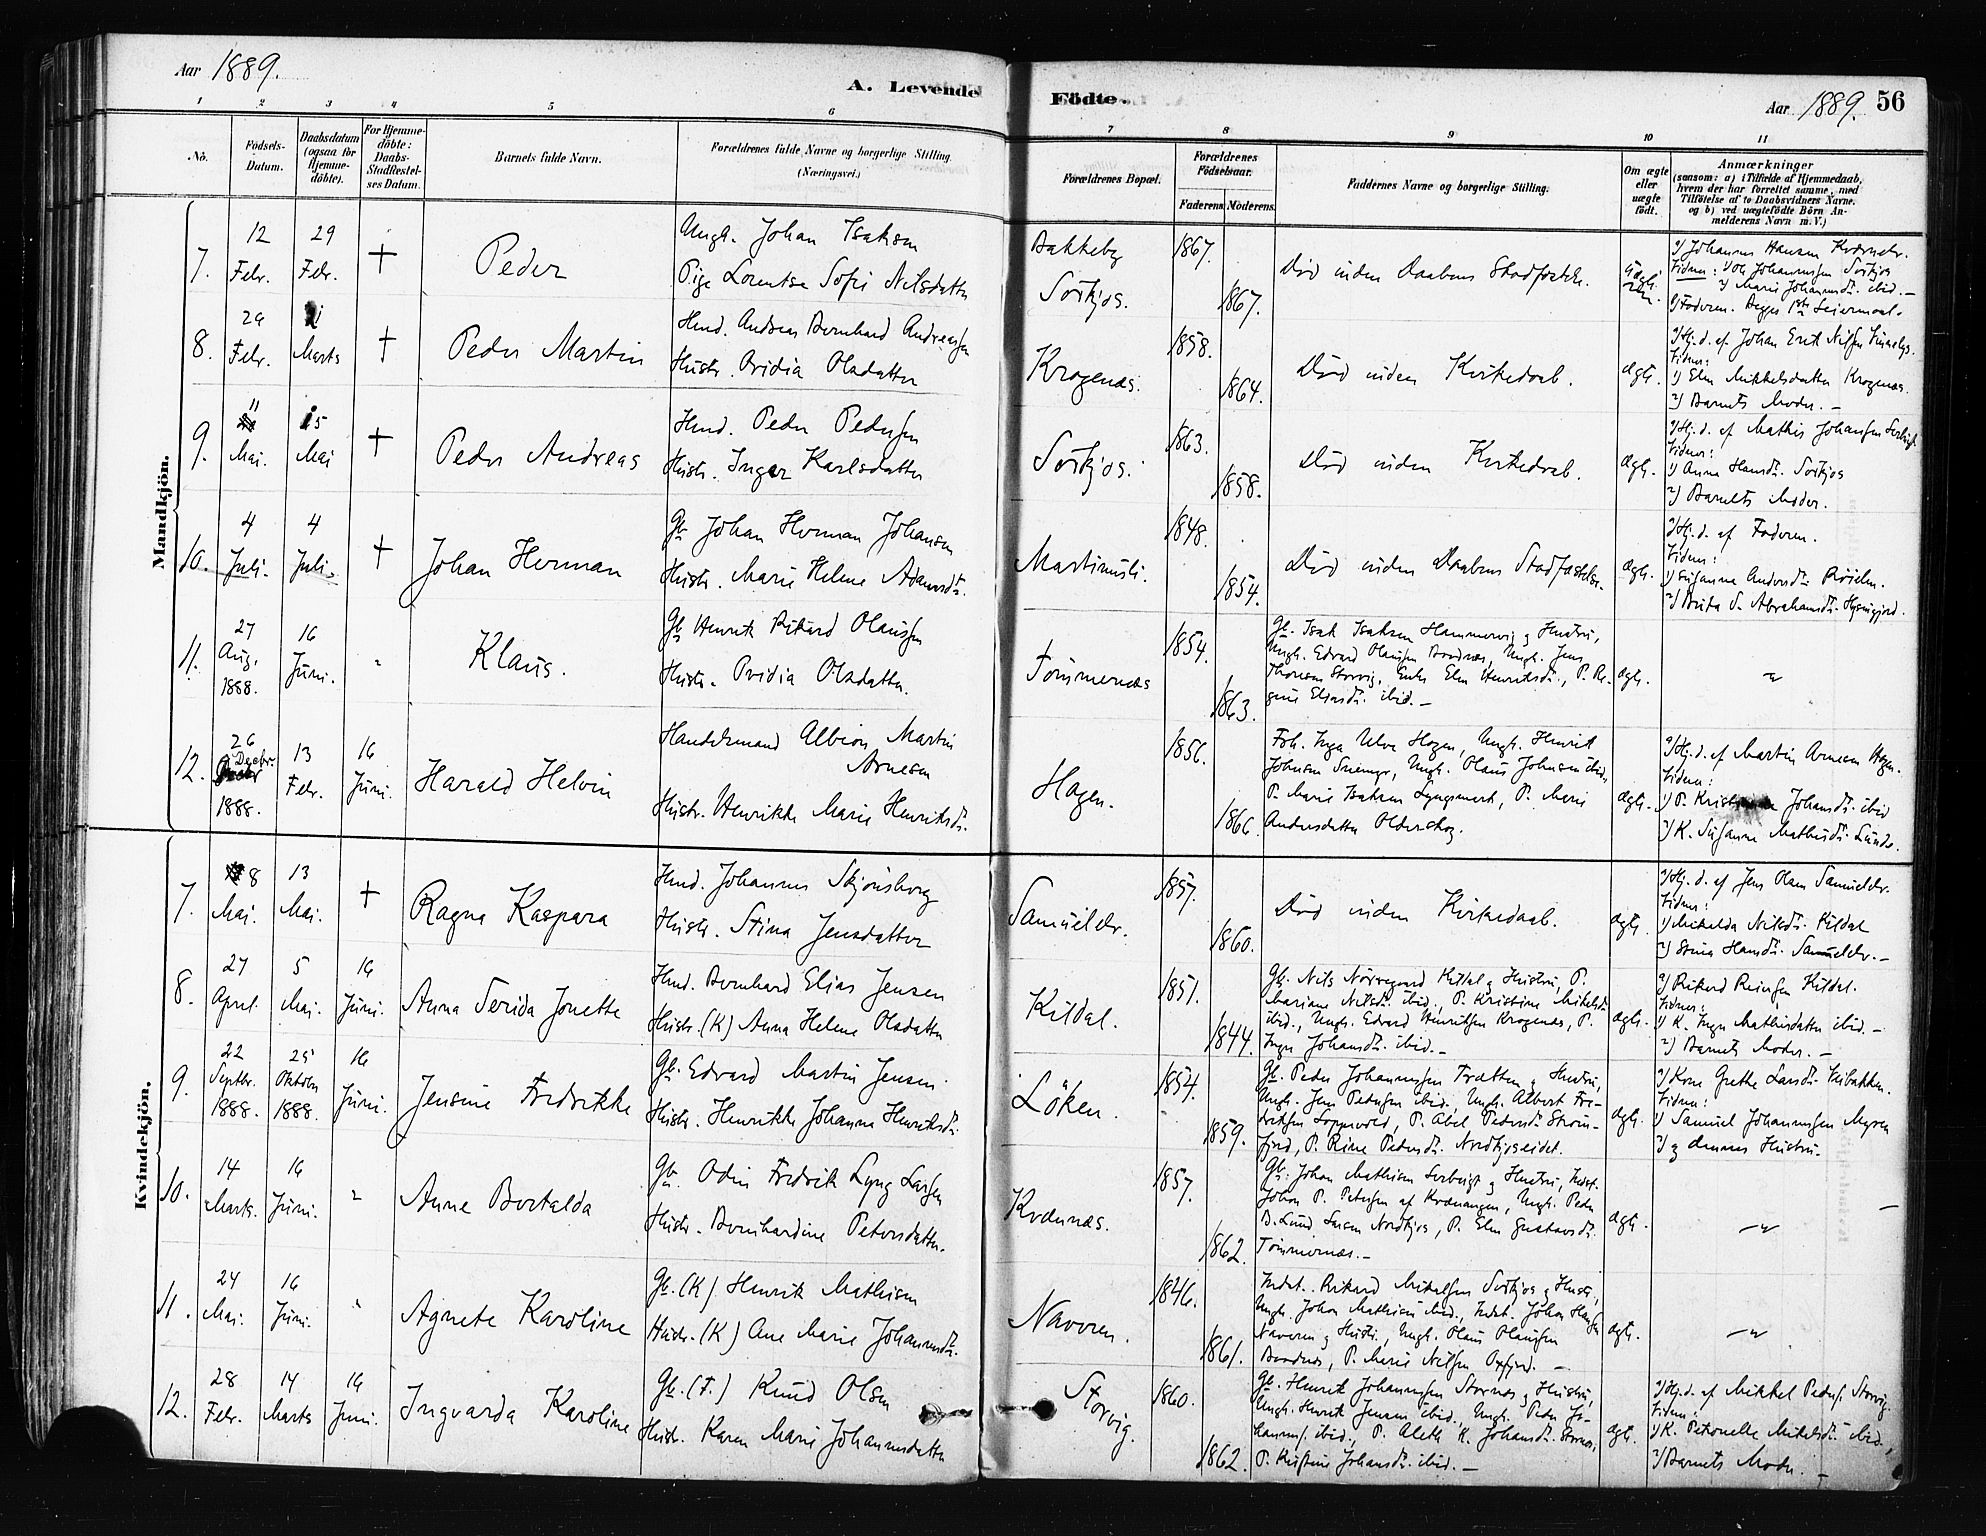 Aar 1889.
A. Levende Födte.
Aar 1889. 56
1 2 3 4 5 6 7 8 9 10 11
No.
Födsels-
Datum.
Daabsdatum
(ogsaa for
Hjemme-
döbte).
For Hjemme-
döbte:
Daabs-
Stadfæstel-
ses Datum.
Barnets fulde Navn.
Forældrenes fulde Navne og borgerlige Stilling.
(Næringsvei.)
Forældrenes Bopæl.
Forældrenes
Födselsaar.
Faderens. Moderens.
Faddernes Navne og borgerlige Stilling.
Om ægte
eller
uægte
födt.
Anmærkninger
(saasom: a) i Tilfælde af Hjemmedaab,
hvem der har forrettet samme, med
Tilföielse af to Daabsvidners Navne,
og b) ved uægtefödte Börn An-
melderens Navn m.V.)
Mandkjön.
7.
12
Febr.
29
Febr.
+
Peder
Ungk. Johan Isaksen
Pige Lorentse Sofie Nilsdatter
Bakkeby
Sörkjos.
1867.
1867.
Död inden Daabens Stadfæstelse.
Tidner: 1) Ole Johannessen Sörkjos
2) Marie Johannsdtr. ibid. —
8.
29
Febr.
Marts
+
Peder Martin
Hmd. Andreas Bernhard Andreassen
Hustr. Ovidia Olsdatter
Krogenæs.
1858.
1864.
Död inden Kirkedaab.
ægte.
Tidner:
1) Elen Mikkelsdatter Krogenæs.
2) Barnets Moder. —
9.
11
Mai.
15
Mai
+
Peder Andreas
Hmd. Peder Pedersen
Hustr. Inger Karlsdatter
Sörkjos.
1863.
1858.
Död inden Kirkedaab.
ægte.
a) Hj. d. af Mathis Johansen
Tidner:
1) Anne Hansdtr. Sörkjos
2) Barnets Moder.
10.
4
Juli.
4
Juli.
+
Johan Herman
Gb. Johan Herman Johansen
Hustr. Marie Helene Adamsdtr.
1848.
1854.
Död inden Daabens Stadfæstelse.
ægte.
a) Hj. d. af Faderen.
Tidner:
1) Susanne Andersdtr.
2) Brita S. Abrahamsdtr.
11.
27
Aug.
1888.
16
Juni.
"
Klaus.
Gb. Henrik Rikard Olaussen
Hustr. Ovidia Olsdatter.
Tömmernæs
1854.
1863.
Gb. Isak Isaksen Hammervig og Hustru,
Ungk. Edvard Olaussen Bordnæs, Ungk. Jens
Thomsen Storvig, Enke Elen Henriksdtr., P. Re-
gine Eliasdtr. ibid. —
ægte.
"
12.
26
Decbr.
1888.
13
Febr.
16
Juni.
Harald Helvin
Handelsmand Albion Martin
Arnesen
Hustr. Henrikke Marie Henriksdtr.
Hagen.
1856.
1866.
Frk. Inga Ulve Hagen, Ungk. Henrik
Johnsen, Ungk. Olaus Johnsen ibid.
P. Marie Isaksen Lyngsmark, P. Marie
Andersdatter Olderskog.
ægte.
a) Hj. d. af Martin Arnesen Hagen.
Tidner:
Johansdtr. ibid
2) K. Susanne Mathisdtr. Lunde.
Kvindekjön.
7.
8
Mai.
13
Mai.
+
Ragna Kaspara
Hmd. Johannes Skjönsberg
Hustr. Stina Jensdatter
Samuelelv.
1857.
1860.
Död inden Kirkedaab.
ægte.
a) Hj. d. af Jens Olsen Samuelelv.
Tidner:
1) Mikelda Nilsdtr. Kildal
2) Stina Hansdtr. Samuelelv. —
8.
27
April.
5
Mai.
16
Juni.
Anna Serida Jonette
Hmd. Bernhard Elias Jensen
Hustr. (K) Anna Helene Olsdatter
Kildal.
1851.
1844.
Gb. Nils Nörregaard Kildal og Hustru, P.
Mariane Nilsdtr. ibid., P. Kristine Mikelsdtr
ibid., Ungk. Edvard Henriksen Krogenæs, P.
Inger Johansdtr. ibid. —
ægte.
a) Rikard Kildal.
Tidner:
1) K. Inger Mathisdatter ibid. —
2) Barnets Moder. —
9.
22
Septbr.
1888.
25
Oktober
1888.
16
Juni.
Jensine Fredrikke
Gb. Edvard Martin Jensen.
Hustr. Henrikke Johanna Henriksdtr.
Löken.
1854.
1859.
Gb. Peder Johannessen Trætten og Hustru,
Ungk. Jens Pedersen ibid. Ungk. Albert Fre-
driksen, P. Abel Pedersdtr. Ström-
fjord, P. Rine Pedersdtr. Nordkjoseidet.
ægte.
a) Kone Grethe Larsdtr.
Tidner:
1) Samuel Johannessen Myren
2) og dennes Hustru.
10.
14
Marts.
16
Juni.
"
Anne Bertalda
Gb. Odin Fredrik Lyng Larsen
Hustr. Bernhardine Petersdatter.
Kvænnæs.
1857.
1862.
Gb. Johan Mathisen og Hustru, Indst.
Johan P. Petersen af Kvænangen, Ungk. Peder
B. Lund Larsen Nordkjos, P. Elen Gustavsdtr.
Tömmernæs. —
ægte.
"
11.
24
Mai.
16
Juni.
"
Agnete Karoline
Gb. (K). Henrik Mathisen
Hustr. (K) Ane Marie Johannesdtr.
Navren.
1846.
1861.
Indst. Rikard Mikelsen Sörkjos og Hustr.,
Ungk. Johan Mathisen ibid., Indst. Johan Hansen
Naveren og Hustr., Ungk. Olaus Olaussen
Bordnæs, P. Marie Nilsen Oxfjord. —
ægte.
"
12.
28
Febr.
14
Marts
16
Juni.
Ingvarda Karoline
Gb. (F.) Knud Olsen
Hustr. Karen Marie Johannesdatter
Storvig.
1860.
1862.
Gb. Henrik Johannessen Stornæs og Hustru,
Ungk. Henrik Jensen ibid., Ungk. Peder Jo-
hannes. ibid., P. Aleth K. Johansdtr. Stornæs,
P. Kristine Johansdtr. ibid. —
ægte.
a) Hj. d. af Mikkel Peders. Storvig.
Tidner:
1) K. Petronelle Mikelsdtr. ibid.,
2) Barnets Moder. —